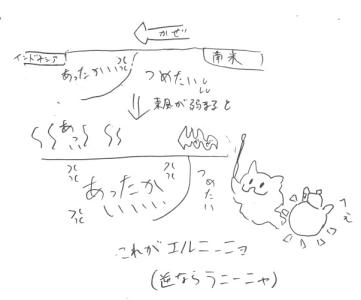 かぜ
インドネシア
南米
あったかいい
つめたいい
東風が弱まると
あつい
あったかいいいい
つめたい
へぇ
これがエルニーニョ
(逆ならラニーニャ)